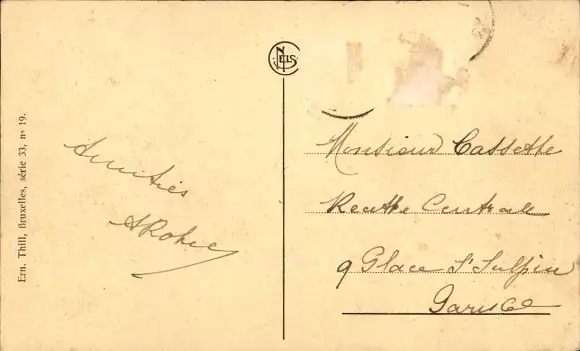 NELS
Ern. Thill, Bruxelles, série 33, no 19.
Amitiés
Monsieur Cassette
Recette Centrale
9 Place St Sulpice
Paris 6e